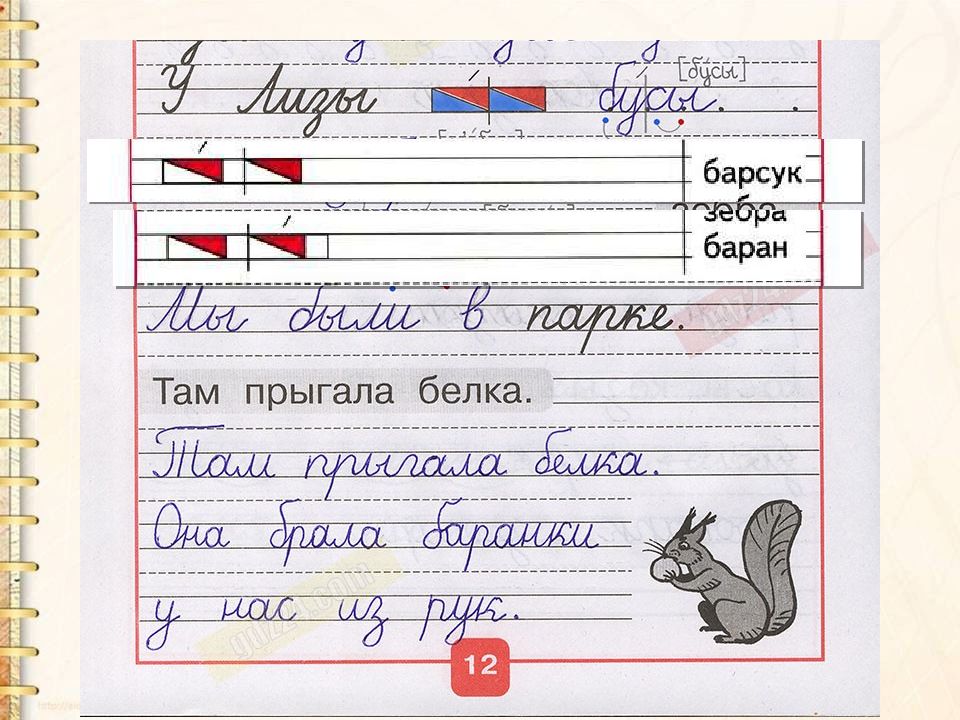 У Лизы бусы.
[бусы]
барсук
зебра
баран
Мы были в парке.
Там прыгала белка.
Там прыгала белка.
Она брала баранки
у нас из рук.
12